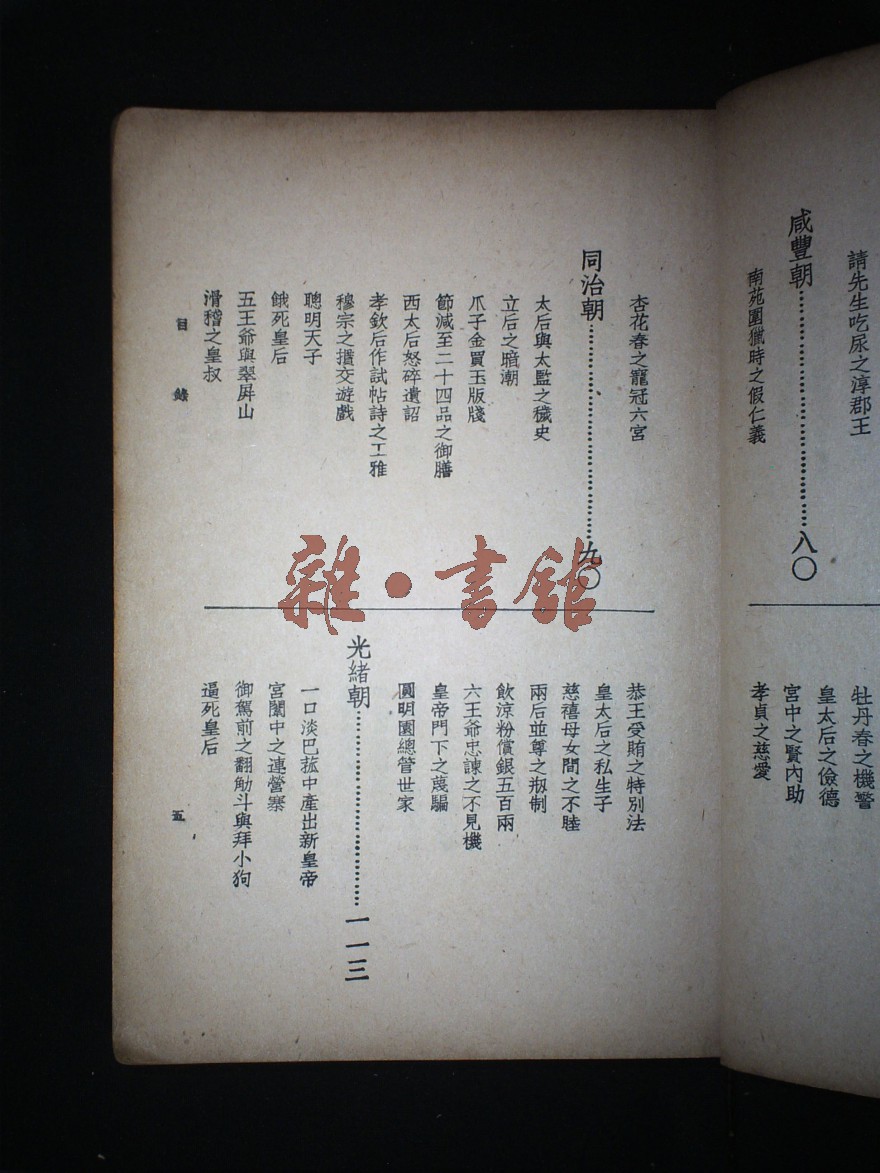 請先生吃尿之淳郡王
咸豐朝……八〇
南苑圍獵時之假仁義
牡丹春之機警
皇太后之儉德
宮中之賢內助
孝貞之慈愛
杏花春之寵冠六宮
同治朝……九〇
太后與太監之穢史
立后之暗潮
爪子金買玉版牋
節減至二十四品之御膳
西太后怒碎遺詔
孝欽后作試帖詩之工雅
穆宗之摜交遊戲
聰明天子
餓死皇后
五王爺與翠屏山
滑稽之皇叔
恭王受賄之特別法
皇太后之私生子
慈禧母女間之不睦
兩后並尊之剏制
飲涼粉償銀五百兩
六王爺忠諫之不見機
皇帝門下之蔑騙
圓明園總管世家
光緒朝……一一三
一口淡巴菰中產出新皇帝
宮闈中之連營寨
御駕前之翻觔斗與拜小狗
逼死皇后
目錄
五
雜·書館